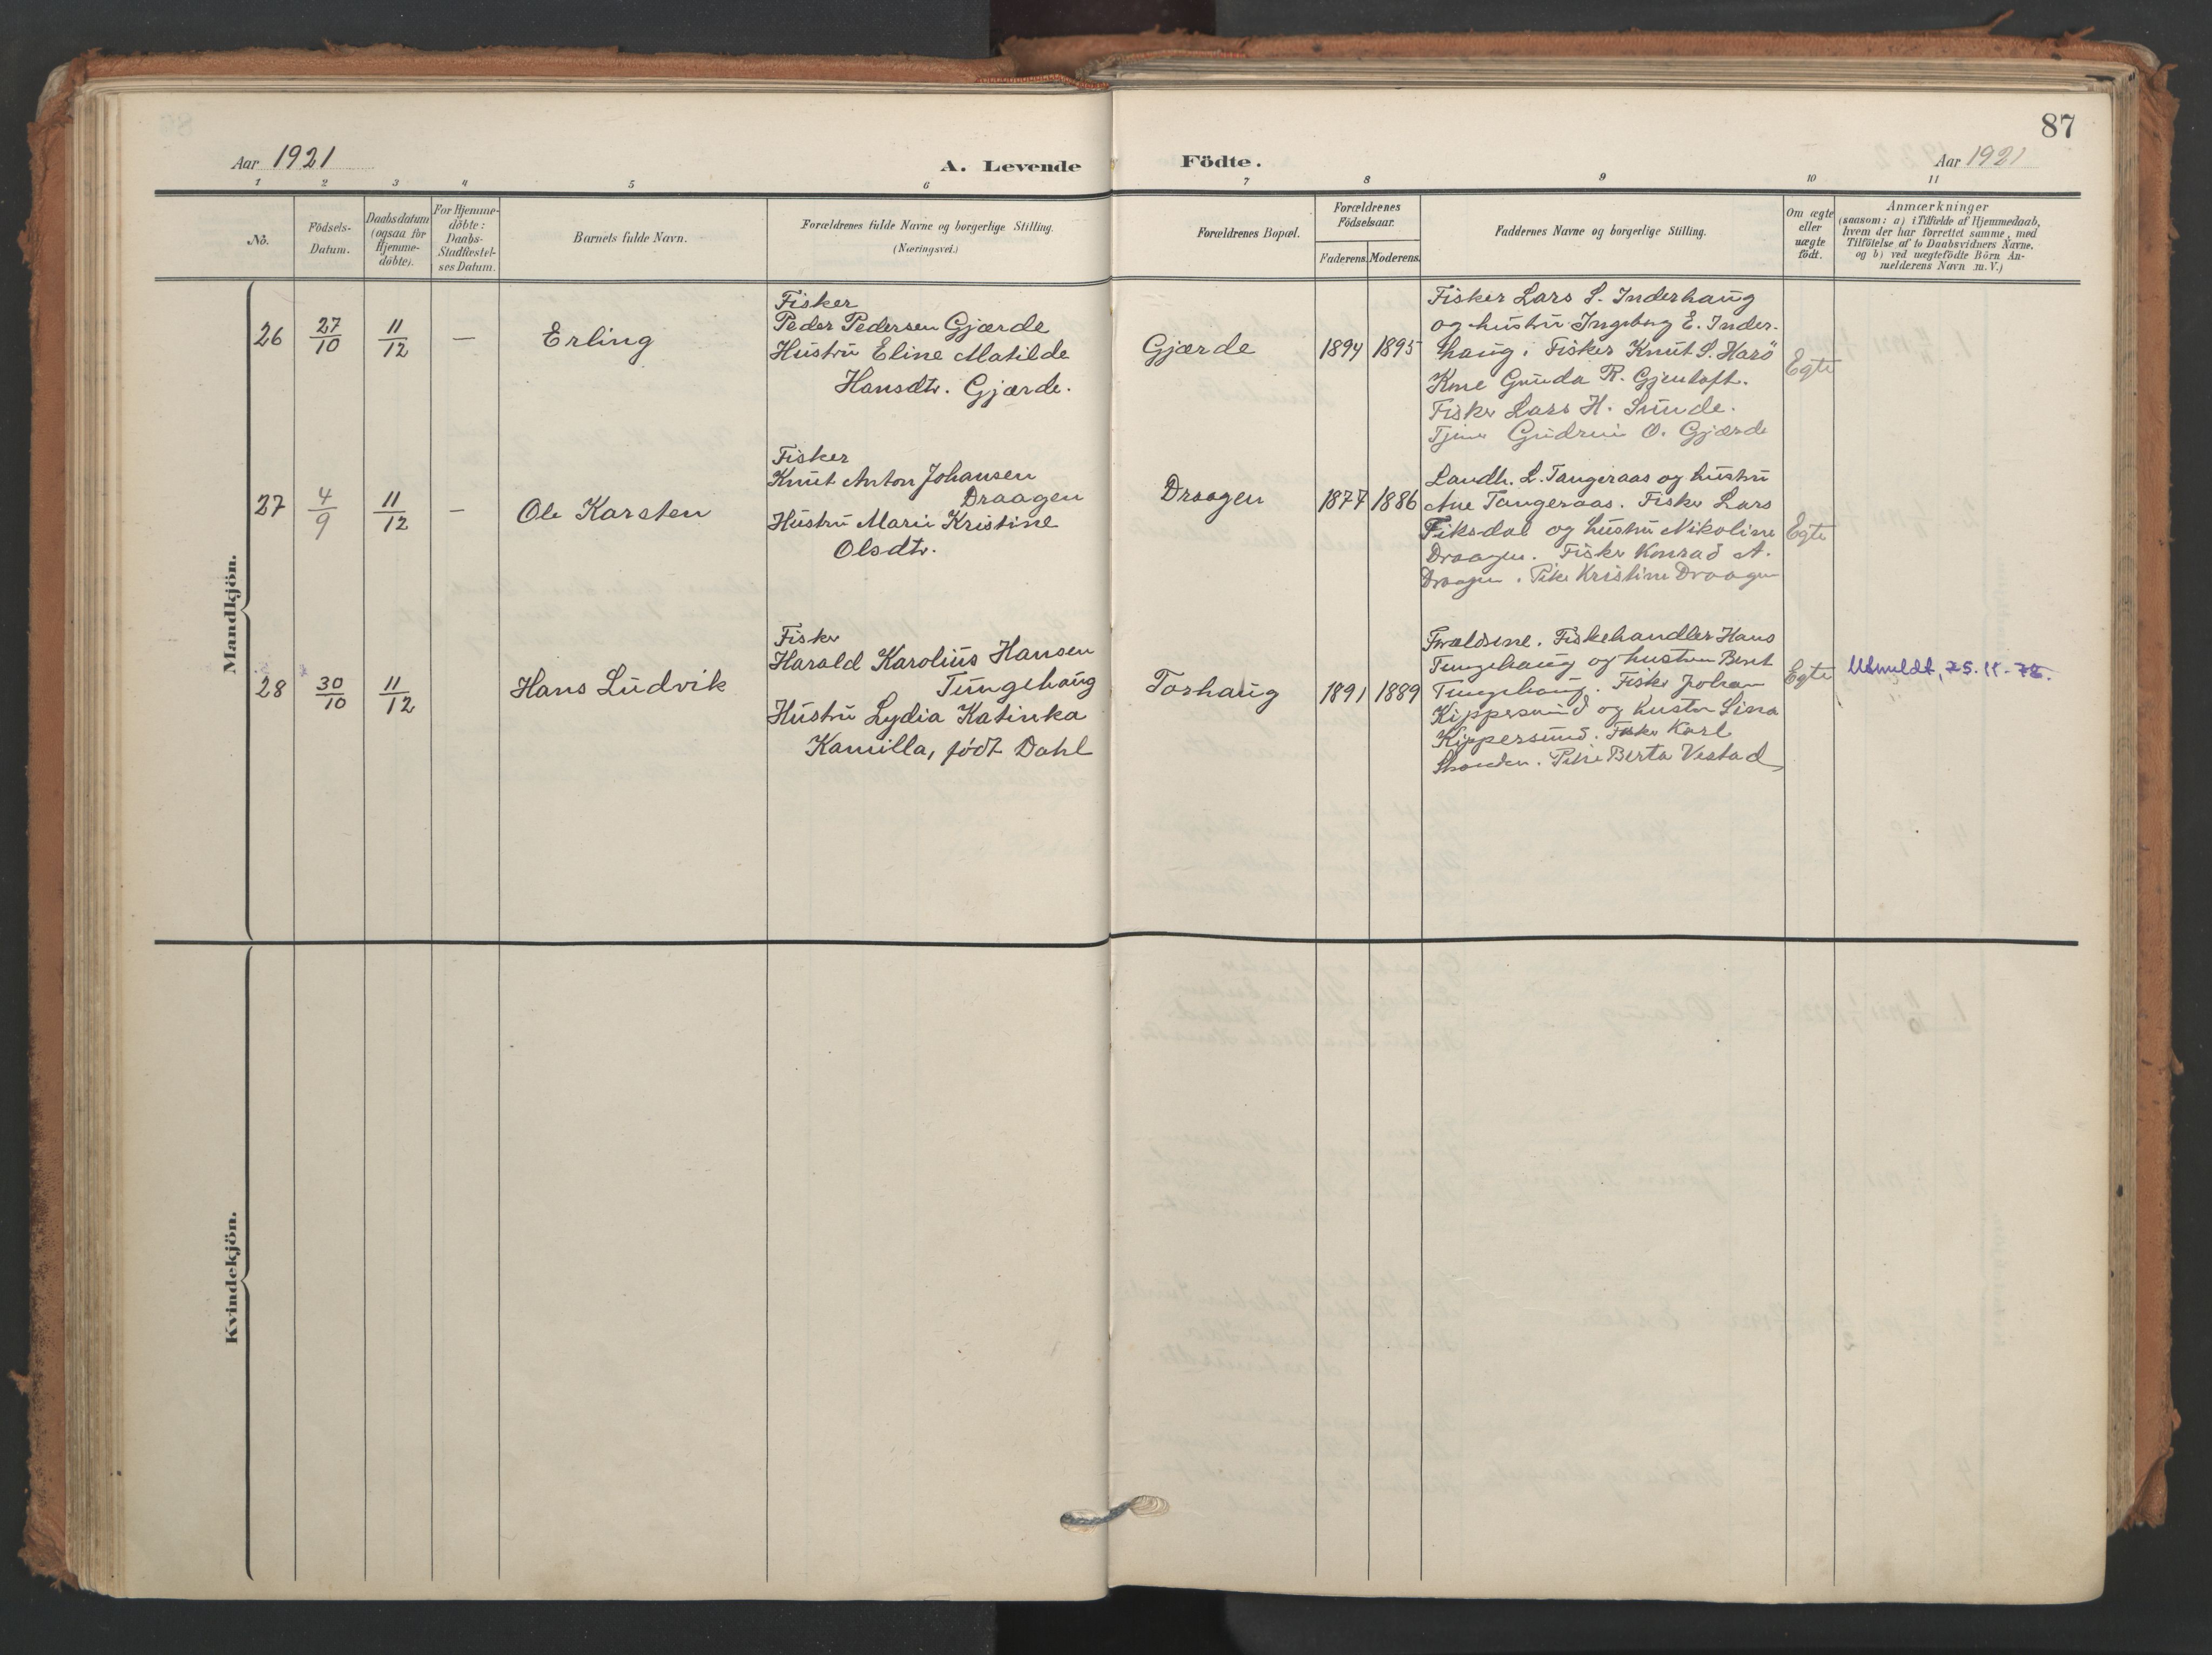 87
Aar 1921
A. Levende
Födte.
Aar 1921
1 2 3 4 5 6 7 8 9 10 11
No.
Födsels-
Datum.
Daabsdatum
(ogsaa for
Hjemme-
döbte).
For Hjemme-
döbte:
Daabs-
Stadfæstel-
ses Datum.
Barnets fulde Navn.
Forældrenes fulde Navne og borgerlige Stilling.
(Næringsvei.)
Forældrenes Bopæl.
Forældrenes
Födselsaar.
Faderens.
Moderens.
Faddernes Navne og borgerlige Stilling.
Om ægte
eller
uægte
födt.
Anmærkninger
(saasom: a) i Tilfælde af Hjemmedaab,
hvem der har forrettet samme, med
Tilföielse af to Daabsvidners Navne,
og b) ved uægtefödte Börn An-
melderens Navn m. V.)
Mandkjön.
26
27/10
11/12
—
Erling
Fisker
Peder Pedersen Gjærde
Hustru Eline Matilde
Hansdtr. Gjærde.
Gjærde
1894
1895
Fisker Lars S. Inderhaug
og hustru Ingeborg E. Inder-
haug. Fisker Knut S. Harö
Kone Gunda R. Gjentoft.
Fisker Lars H. Sunde.
Gudrun O. Gjærde
Egte
27
4/9
11/12
-
Ole Karsten
Fisker
Knut Anton Johansen
Draagen
Hustru Marie Kristine
Olsdtr.
Draagen
1877
1886
Landh. L. Tangeraas og hustru
Ane Tangeraas. Fisker Lars
Fiksdal og hustru Nikoline
Draagen. Fisker Konrad A.
Draagen. Pike Kristine Draagen
Egte
28
30/10
11/12
Hans Ludvik
Fisker
Harald Karolius Hansen
Tungehaug
Hustru Lydia Katinka
Kamilla, født Dahl
Torhaug
1891
1889
Forældrene. Fiskehandler Hans
Tungehaug og hustru Berit
Tungehaug. Fisker Johan
Kippersund og hustru Lina
Kippersund. Fisker Karl
Pike Berta Vestad
Egte
Utmeldt, 25.11.-76.
Kvindekjön.